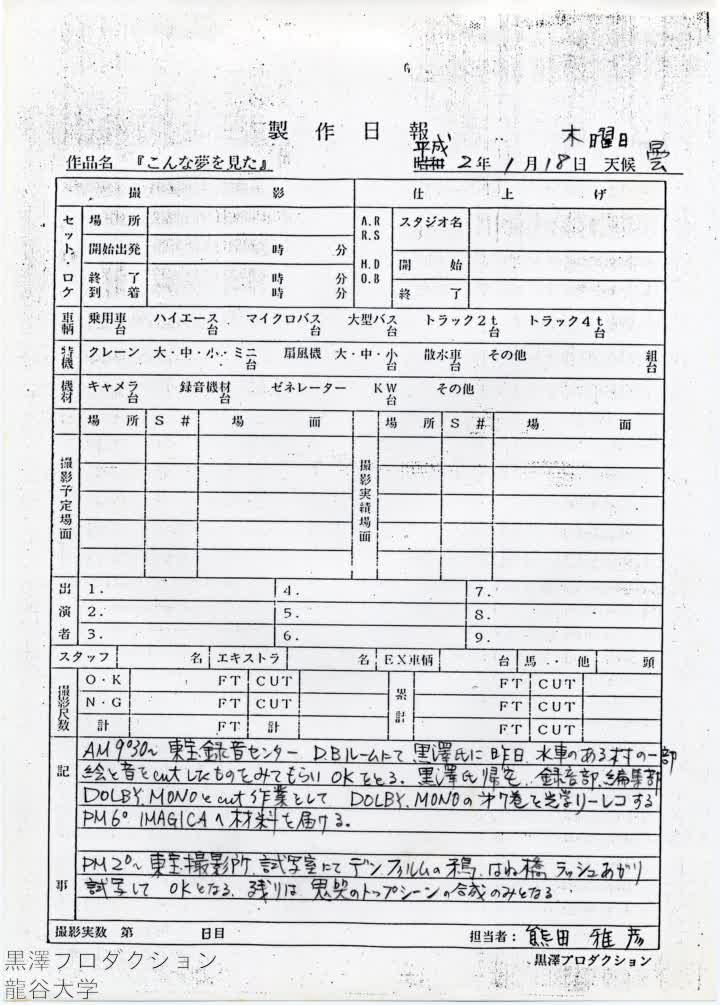 製作日報
木曜日
作品名 『こんな夢を見た』 平成 昭和 2年 1月 18日 天候 曇
撮影 仕上げ
セット、ロケ 場所 A.R R.S スタジオ名
開始出発 時 分
M.D O.B 開始
終了 到着 時 分 時 分 終了
車輌 乗用車 台 ハイエース 台 マイクロバス 台 大型バス 台 トラック2t 台 トラック4t 台
特機 クレーン 大・中・小・ミニ 台 扇風機 大・中・小 台 散水車 台 その他 組 台
機材 キャメラ 台 録音機材 台 ゼネレーター KW 台 その他
場所 S# 場面 場所 S# 場面
撮影予定場面 撮影実績場面
出演者 1. 4. 7.
2. 5. 8.
3. 6. 9.
スタッフ 名 エキストラ 名 EX車輌 台 馬・他 頭
撮影尺数 O・K FT CUT 累計 FT CUT
N・G FT CUT FT CUT
計 FT 計 FT CUT
記事
AM9°30~ 東宝録音センター D.Bルームにて 黒澤氏に昨日、水車のある村の一部
絵と音をcutしたものをみてもらいOKをとる。黒澤氏帰宅、録音部、編集部
DOLBY.MONOとcut作業として DOLBY.MONOの 7巻を光学リーレコする
PM6° IMAGICAへ材料を届ける。
PM2°~ 東宝撮影所、試写室にて デン.フィルムの鴉、はね橋 ラッシュあがり
試写して OKとなる、残りは、鬼哭のトップシーンの合成のみとなる
撮影実数 第 日目 担当者: 熊田雅彦
黒澤プロダクション
黒澤プロダクション
龍谷大学